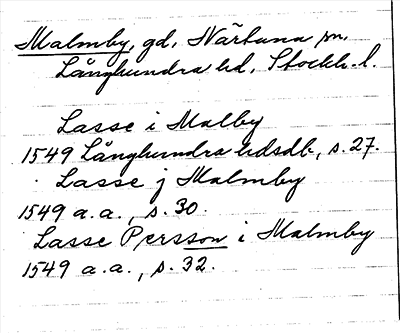 Malmby, gd, Närtuna sn,
Långhundra hd, Stockh. l.
Lasse i Malby
1549 Långhundra hdsdb, s. 27.
Lasse j Malmby
1549 a.a., s. 30.
Lasse Persson i Malmby
1549 a.a., s. 32.